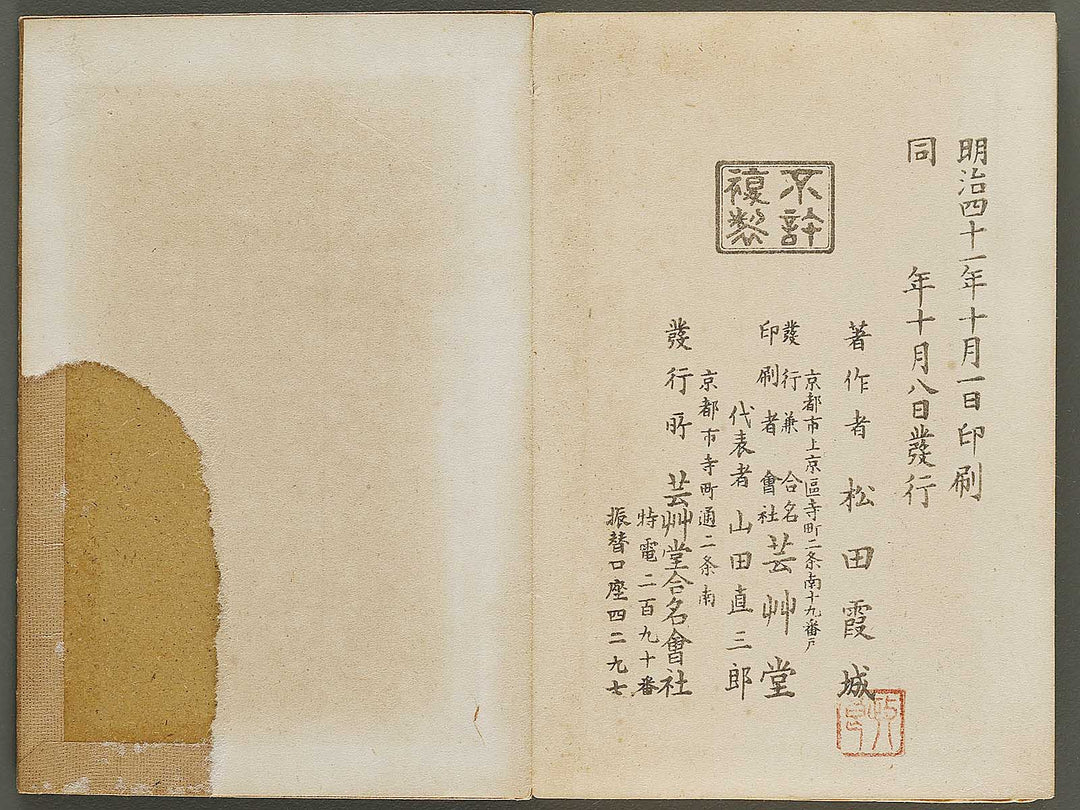 明治四十一年十月一日印刷
同　年十月八日發行
不許
複製
著作者　松田霞城
京都市上京區寺町二条南十九番戸
發行兼　合名
印刷者　會社　芸艸堂
代表者　山田直三郎
京都市寺町通二条南
發行所　芸艸堂合名會社
特電二百九十番
振替口座四二九七